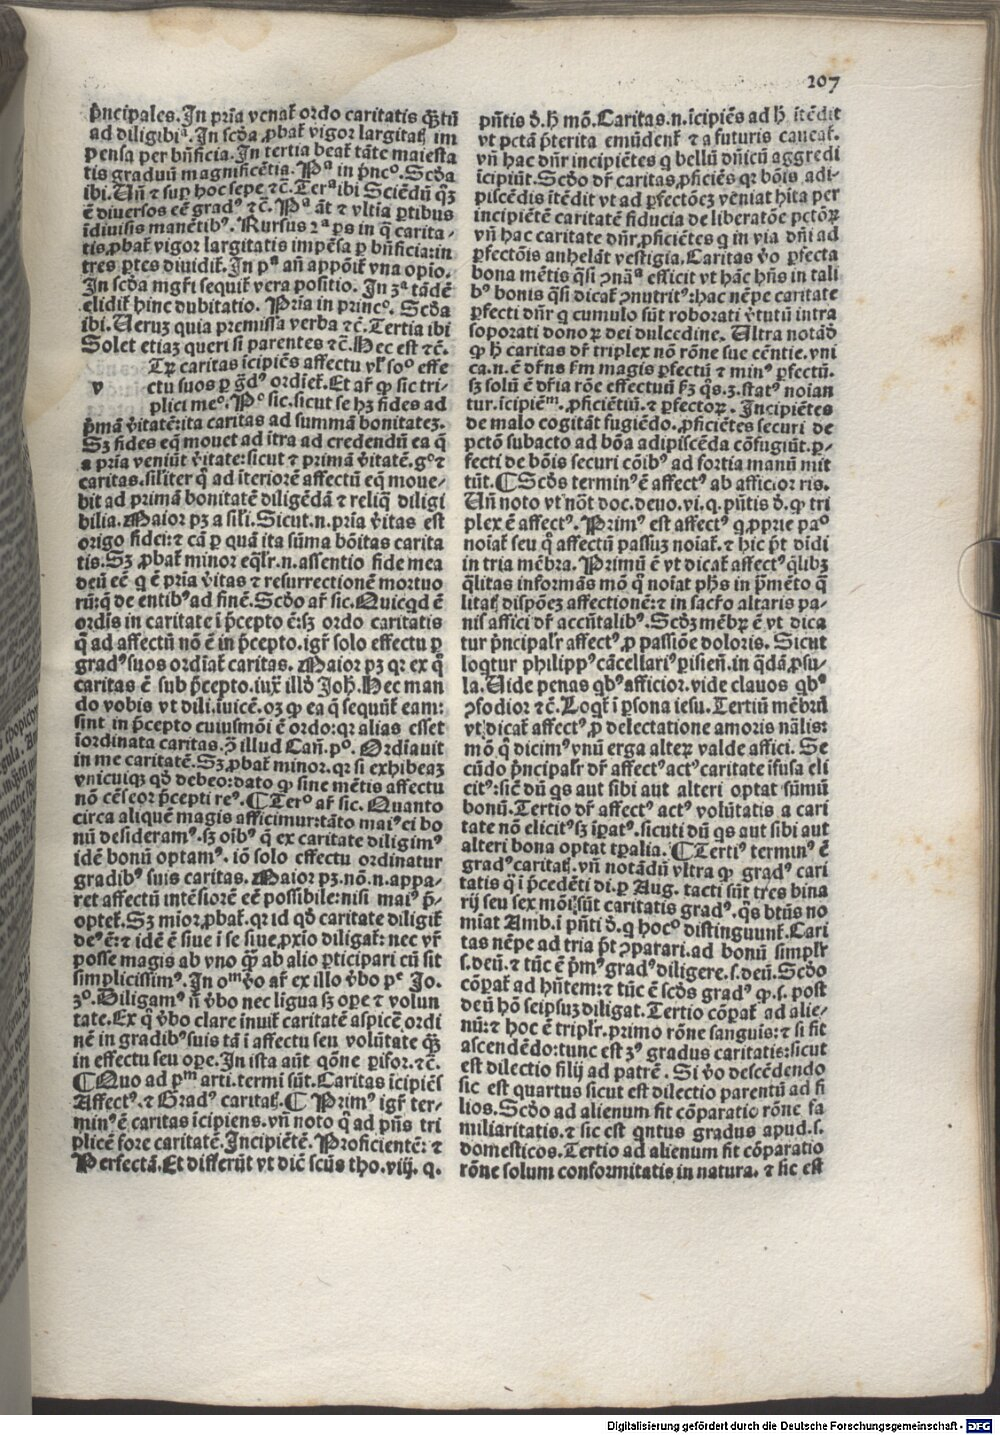 207
p̄ncipales. In pr̄ia venat᷑ ordo caritatis qȝ̄tū
ad diligibiᵃ. In scd̄a ꝓbat᷑ vigor largitatꝭ im
pensa per bn̄ficia. In tertia beat᷑ tāte maiesta
tis graduū magnificētia. Pᵃ in p̄ncᵒ. Scd̄a
ibi. Un̄ ⁊ suꝑ hoc sepe ⁊c̄. Terᵃ ibi Sciēdū qȝ
ē diuersos eē gradꝰ ⁊c̄. Pᵃ āt ⁊ vltīa ꝑtibus
īdiuisis manētibꝰ. Rursus 2ᵃ ꝑs in q̄ carita-
tis ꝓbat᷑ vigor largitatis impēsa ꝑ bn̄ficia: in
tres ꝑtes diuidit᷑. In pᵃ an̄ appōit᷑ vna opīo.
In scd̄a mgr̄i sequit᷑ vera positio. In 3ᵃ tādē
elidit᷑ hinc dubitatio. Pr̄ia in princᵒ. Scd̄a
ibi. Ueruȝ quia premissa verba ⁊c̄. Tertia ibi
Solet etiaȝ queri si parentes ⁊c̄. Hec est ⁊c̄.
Tꝝ caritas īcipiēs affectu vl̄ soᵒ effe
v ctu suos ꝑ gd̄ꝰ ordīet᷑. Et ar̄ ꝙ sic tri-
plici meᵒ. Pᵒ sic. sicut se hȝ fides ad
p̄mā v̄itatē: ita caritas ad summā bonitateȝ.
Sȝ fides eq̄ mouet ad ītra ad credendū ea q̄
a pr̄ia veniūt v̄itate: sicut ⁊ primā v̄itatē. gᵒ ⁊
caritas. sil̄iter q̄ ad īteriorē affectū eq̄ moue-
bit ad primā bonitatē diligēdā ⁊ reliq̄ diligi
bilia. Maior pȝ a sil̄i. Sicut .n. pr̄ia v̄itas est
origo fidei: ⁊ cā ꝑ quā ita sūma bōitas carita
tis. Sȝ ꝓbat᷑ minor eq̄lr̄ .n. assentio fide mea
deū eē q̇ ē pr̄ia v̄itas ⁊ resurrectionē mortuo
rū: q̄ de entibꝰ ad finē. Scd̄o ar̄ sic. Quicqd̄ ē
ordīs in caritate ī p̄cepto ē: sȝ ordo caritatis
q̄ ad affectū nō ē in p̄cepto. igr̄ solo effectu ꝑ
gradꝰ suos ordīat᷑ caritas. Maior pȝ qr ex q̄
caritas ē sub p̄cepto. iux̄ illd̄ Joh̄. Hec man
do vobis vt dili. īuicē. oȝ ꝙ ea q̄ sequūt᷑ eam:
sint in p̄cepto cuiusmōi ē ordo: qr alias esset
īordinata caritas. ꝯ̄ illud Can̄. pᵒ. Ordīauit
in me caritatē. Sȝ ꝓbat᷑ minor. qr si exhibeaȝ
vnicuiqȝ qd̄ debeo: dato ꝙ sine mētis affectu
nō cēseor p̄cepti reꝰ. ¶ Terᵒ ar̄ sic. Quanto
circa aliquē magis afficimur: tāto maiꝰ ei bo
nū desideramꝰ. sȝ oīb̄ꝰ q̄ ex caritate diligimꝰ
idē bonū optamꝰ. iō solo effectu ordinatur
gradibꝰ suis caritas. Maior pȝ. nō .n. appa-
ret affectū intēsiorē eē possibile: nisi maiꝰ p̄-
optet᷑. Sȝ mīor ꝓbat᷑. qr id qd̄ caritate diligit᷑
deꝰ ē: ⁊ idē ē siue ī se siue ꝓxio diligat᷑: nec vr̄
posse magis ab vno qȝ̄ ab alio ꝑticipari cū sit
simplicissimꝰ. In oᵐ v̄o ar̄ ex illo v̄bo pᵉ Jo.
3ᵒ. Diligamꝰ n̄ v̄bo nec ligua sȝ oꝑe ⁊ volun
tate. Ex q̄ v̄bo clare īnuit᷑ caritatē aspicē ordi
nē in gradibꝰ suis tā ī affectu seu volūtate qȝ̄
in effectu seu oꝑe. In ista aūt qōne ꝑīfor. ⁊c̄.
¶ Quo ad pᵐ arti. termi sūt. Caritas īcipiēs
Affectꝰ. ⁊ Gradꝰ caritatꝭ. ¶ Primꝰ igr̄ ter-
minꝰ ē caritas īcipiens. vn̄ noto q̄ ad pn̄s tri
plicē fore caritatē. Incipiētē. Proficientē: ⁊
Perfectā. Et differūt vt dic̄ scūs tho. viij. q.
pn̄tis d̄. h̄ mō. Caritas .n. īcipiēs ad h̄ ītēdit
vt pctā p̄terita emūdent᷑ ⁊ a futuris caueat᷑.
vn̄ hac dn̄r incipiētes q̇ bellū dn̄icū aggredi
icipiūt. Scd̄o dr̄ caritas ꝓficiēs qr bōis adi-
piscēdis ītēdit vt ad ꝑfectōeȝ veniat hīta per
incipiētē caritatē fiducia de liberatōe pctōꝝ
vn̄ hac caritate dn̄r ꝓficiētes q̇ in via dn̄i ad
ꝑfectōis anhelāt vestigia. Caritas v̄o ꝑfecta
bona mētis q̄si ꝯnāᵃ efficit vt hāc hn̄s in tali
bꝰ bonis q̄si dicat᷑ ꝯnutritꝰ: hac nēpe caritate
ꝑfecti dn̄r q̇ cumulo sūt roborati v̄tutū intra
soporati donoꝝ dei dulcedine. Ultra notād̄
ꝙ h̄ caritas dr̄ triplex nō rōne sue cēntie. vni
ca .n. ē dr̄ns s̄m magis ꝑfectū ⁊ minꝰ ꝑfectū.
sȝ solū ē dr̄ia rōe effectuū s̄ȝ q̄s .3. statꝰ noian
tur. īcipiēᵐ. ꝓficiētiū. ⁊ ꝑfectoꝝ. Incipiētes
de malo cogitāt fugiēdo. ꝓficiētes securi de
pctō subacto ad bōa adipiscēda cōfugiūt. ꝑ-
fecti de bōis securi cōibꝰ ad fortia manū mit
tūt. ¶ Scd̄s terminꝰ ē affectꝰ ab afficior ris.
Un̄ noto vt nōt doc. deuo. vi. q. pn̄tis d̄. ꝙ tri
plex ē affectꝰ. Primꝰ est affectꝰ q̇ ꝓprie paᵒ
noiat᷑ seu q̄ affectū passuȝ noiat᷑. ⁊ hic p̄t diūdi
in tria mēbra. Primū ē vt dicat᷑ affectꝰ q̄libȝ
q̄litas informās mō q̄ noiat ph̄s in p̄mēto q̄
litatꝭ dispōeȝ affectionē: ⁊ in sacr̄o altaris pa-
nis affici dr̄ accn̄talibꝰ. Scd̄ȝ mēbꝝ ē vt dica
tur p̄ncipalr̄ affectꝰ ꝓ passiōe doloris. Sicut
loqtur philippꝰ cācellariꝰ ꝑisien̄. in q̄dā ꝓsu-
la. Uide penas qb̄ꝰ afficior. vide clauos qb̄ꝰ
ꝯfodior ⁊c̄. Loqt᷑ ī ꝑsona iesu. Tertiū mēbrū
vt dicat᷑ affectꝰ ꝓ delectatione amoris nālis:
mō q̄ dicimꝰ vnū erga alteꝝ valde affici. Se
cūdo p̄ncipalr̄ dr̄ affectꝰ actꝰ caritate īfusa eli
citꝰ: siē dū qs aut sibi aut alteri optat sūmū
bonū. Tertio dr̄ affectꝰ actꝰ volūtatis a cari
tate nō elicitꝰ sȝ īꝑatꝰ. sicuti dū qs aut sibi aut
alteri bona optat tꝑalia. ¶ Tertiꝰ terminꝰ ē
gradꝰ caritatꝭ. vn̄ notādū vltra ꝙ gradꝰ cari
tatis q̄ ī p̄cedēti di. ꝑ Aug. tacti sūt tres bina
rij seu sex mōi sūt caritatis gradꝰ. q̄s btūs no
mīat Amb. ī pn̄ti d̄. q̇ hocᵒ distinguunt᷑. Cari
tas nēpe ad tria p̄t ꝯparari. ad bonū simplr̄
.s. deū. ⁊ tūc ē p̄mꝰ gradꝰ diligere .s. deū. Scd̄o
cōꝑat᷑ ad hn̄tem: ⁊ tūc ē scd̄s gradꝰ ꝙ .s. post
deū hō seipsuȝ diligat. Tertio cōꝑat᷑ ad alie-
nū: ⁊ hoc ē triplr̄. primo rōne sanguīs: ⁊ si fit
ascendēdo: tunc est 3ꝰ gradus caritatis: sicut
est dilectio filij ad patrē. Si v̄o descēdendo
sic est quartus sicut est dilectio parentū ad fi
lios. Scd̄o ad alienum fit cōparatio rōne fa
miliaritatis. ⁊ sic est qntus gradus apud .s.
domesticos. Tertio ad alienum fit cōparatio
rōne solum conformitatis in natura. ⁊ sic est
Digitalisierung gefördert durch die Deutsche Forschungsgemeinschaft - DFG